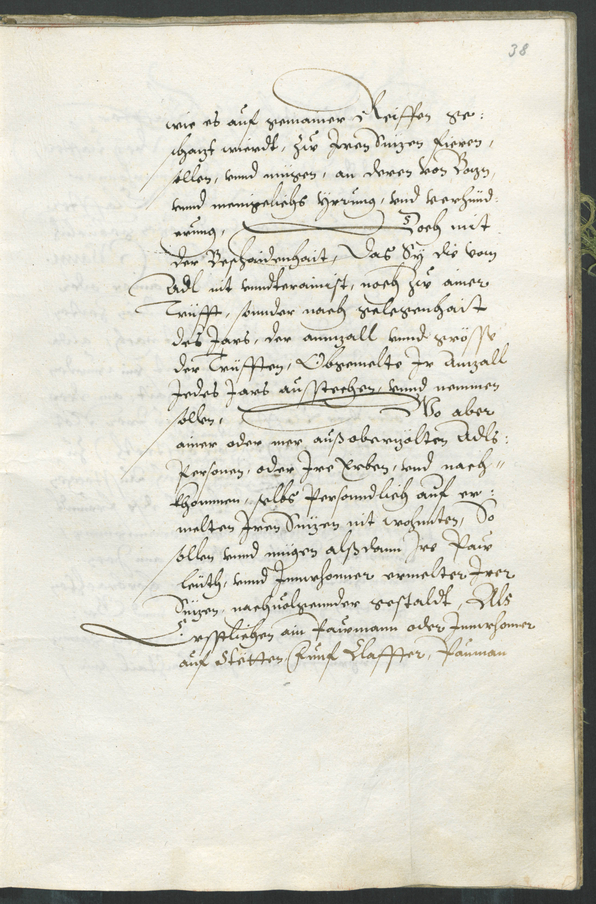 38
wie es auf gemainer Reiffen ge:
schazt wierdt, zu Iren Suizen fieren,
sollen, vnnd mügen, an deren von Bozn,
vnnd menigelichs Yrrung, vnd verhünd,
erung, Doch mit
der Beschaidenhait, Das Sÿ die vom
Adl nit vnndterainist, noch zu ainer
Trüfft, sonnder nach gelegenhait
des Jars, der anntzall vnnd grösse
der Trüfften, Obgemelte Ir Anzall
Jedes Jars ausstechen, vnnd nemmen
sollen, Wo aber
ainer oder mer auß oberzölten Adls:
Personen, oder Ire Erben, vnd nach-
khommen, selbs Persoundlich auf er:
melten Iren Suizen nit wohnten, So
sollen vnnd mügen alßdann Ire Paw
leüth, vnnd Innwhonner ermelter Irer
Suizen, nachuolgennder gestaldt, Als
Erstlichen ain Pawmann oder Innwhoner
auf Stetten Fünf Claffter, Pauman